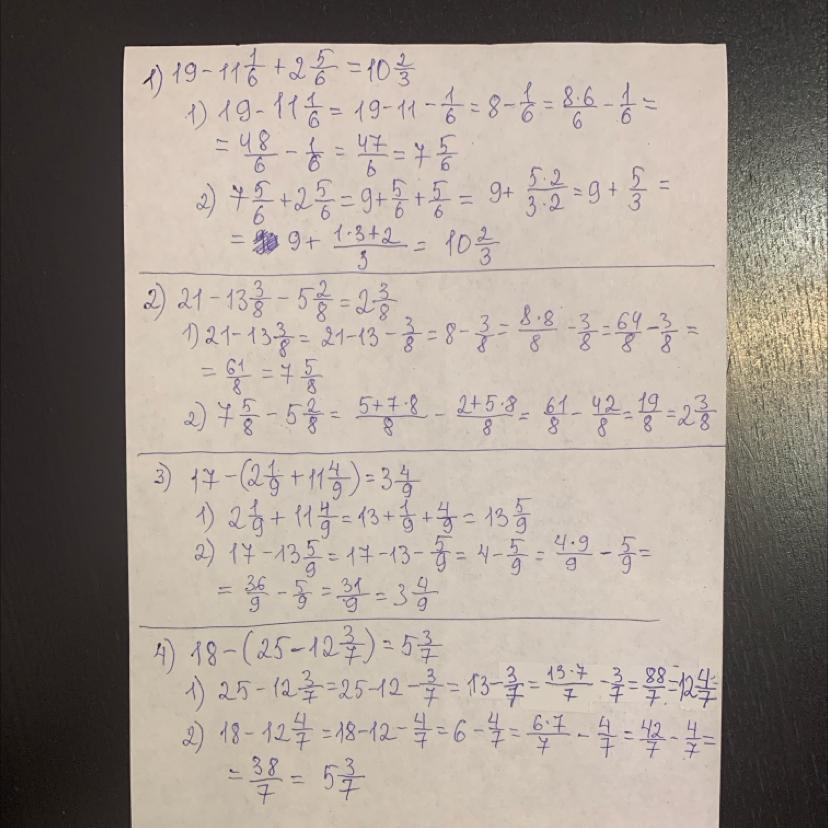 1) 19 - 11 1/6 + 2 5/6 = 10 2/3
1) 19 - 11 1/6 = 19 - 11 - 1/6 = 8 - 1/6 = 8·6/6 - 1/6 =
= 48/6 - 1/6 = 47/6 = 7 5/6
2) 7 5/6 + 2 5/6 = 9 + 5/6 + 5/6 = 9 + 5·2/3·2 = 9 + 5/3 =
= 9 + 1·3+2/3 = 10 2/3
2) 21 - 13 3/8 - 5 2/8 = 2 3/8
1) 21 - 13 3/8 = 21 - 13 - 3/8 = 8 - 3/8 = 8·8/8 - 3/8 = 64/8 - 3/8 =
= 61/8 = 7 5/8
2) 7 5/8 - 5 2/8 = 5+7·8/8 - 2+5·8/8 = 61/8 - 42/8 = 19/8 = 2 3/8
3) 17 - (2 1/9 + 11 4/9) = 3 4/9
1) 2 1/9 + 11 4/9 = 13 + 1/9 + 4/9 = 13 5/9
2) 17 - 13 5/9 = 17 - 13 - 5/9 = 4 - 5/9 = 4·9/9 - 5/9 =
= 36/9 - 5/9 = 31/9 = 3 4/9
4) 18 - (25 - 12 3/7) = 5 3/7
1) 25 - 12 3/7 = 25 - 12 - 3/7 = 13 - 3/7 = 13·7/7 - 3/7 = 88/7 = 12 4/7 =
2) 18 - 12 4/7 = 18 - 12 - 4/7 = 6 - 4/7 = 6·7/7 - 4/7 = 42/7 - 4/7 =
= 38/7 = 5 3/7